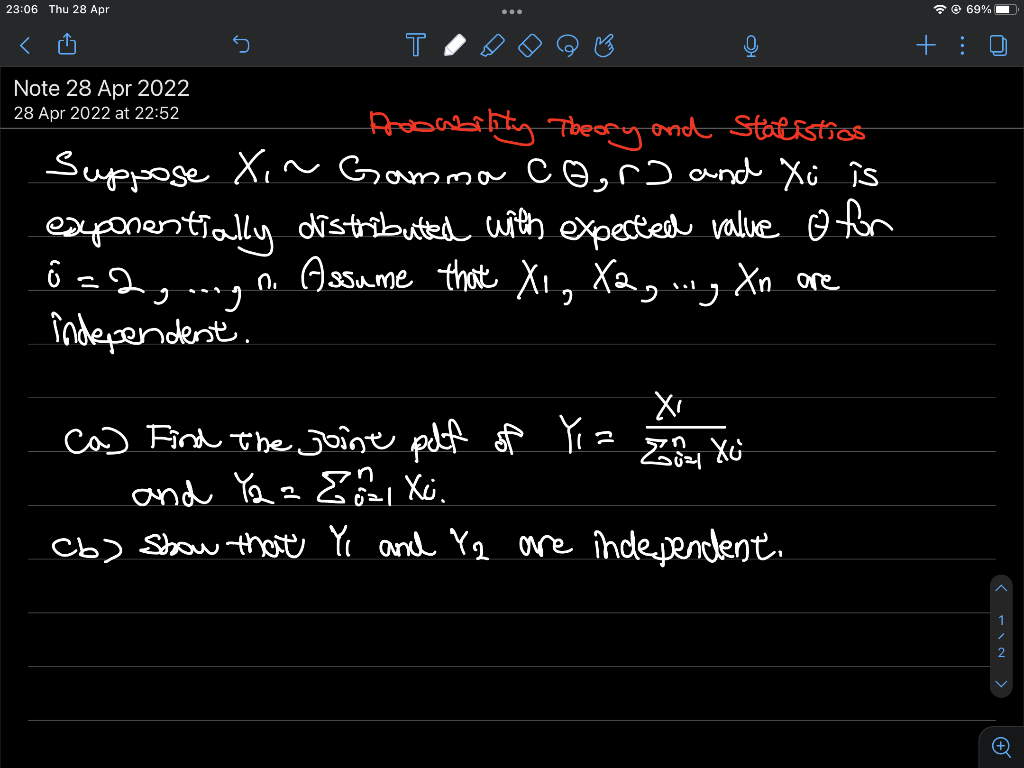 23:06 Thu 28 Apr
69%
Note 28 Apr 2022
28 Apr 2022 at 22:52
Probability Theory and Statistics
Suppose X₁ ~ Gamma (θ, r) and Xi is
exponentially distributed with expected value θ for
i = 2, ..., n. Assume that X₁, X₂, ..., Xn are
independent.
(a) Find the joint pdf of Y₁ = X₁ / ∑ⁿᵢ₌₁ Xi
and Y₂ = ∑ⁿᵢ₌₁ Xi.
(b) Show that Y₁ and Y₂ are independent.
1
/
2